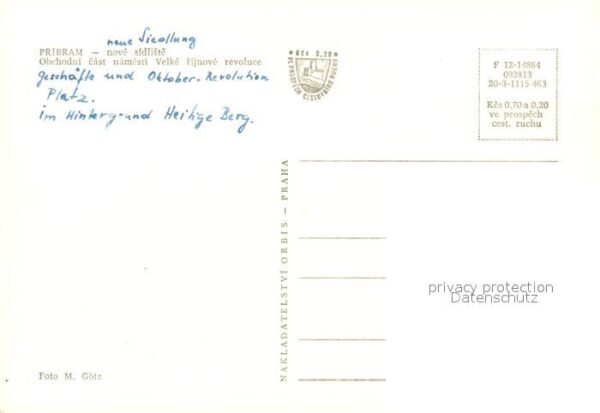 neue Siedlung
PŘÍBRAM — nové sídliště
Obchodní část náměstí Velké říjnové revoluce
geschäfte und Oktober-Revolution
Platz.
im Hintergrund Heilige Berg.
* Kčs 0,20 *
VE PROSPĚCH CESTOVNÍHO RUCHU
F 12-14864
092813
20-3-1115 463
Kčs 0,70 a 0,20
ve prospěch
cest. ruchu
NAKLADATELSTVÍ ORBIS — PRAHA
privacy protection
Datenschutz
Foto M. Götz